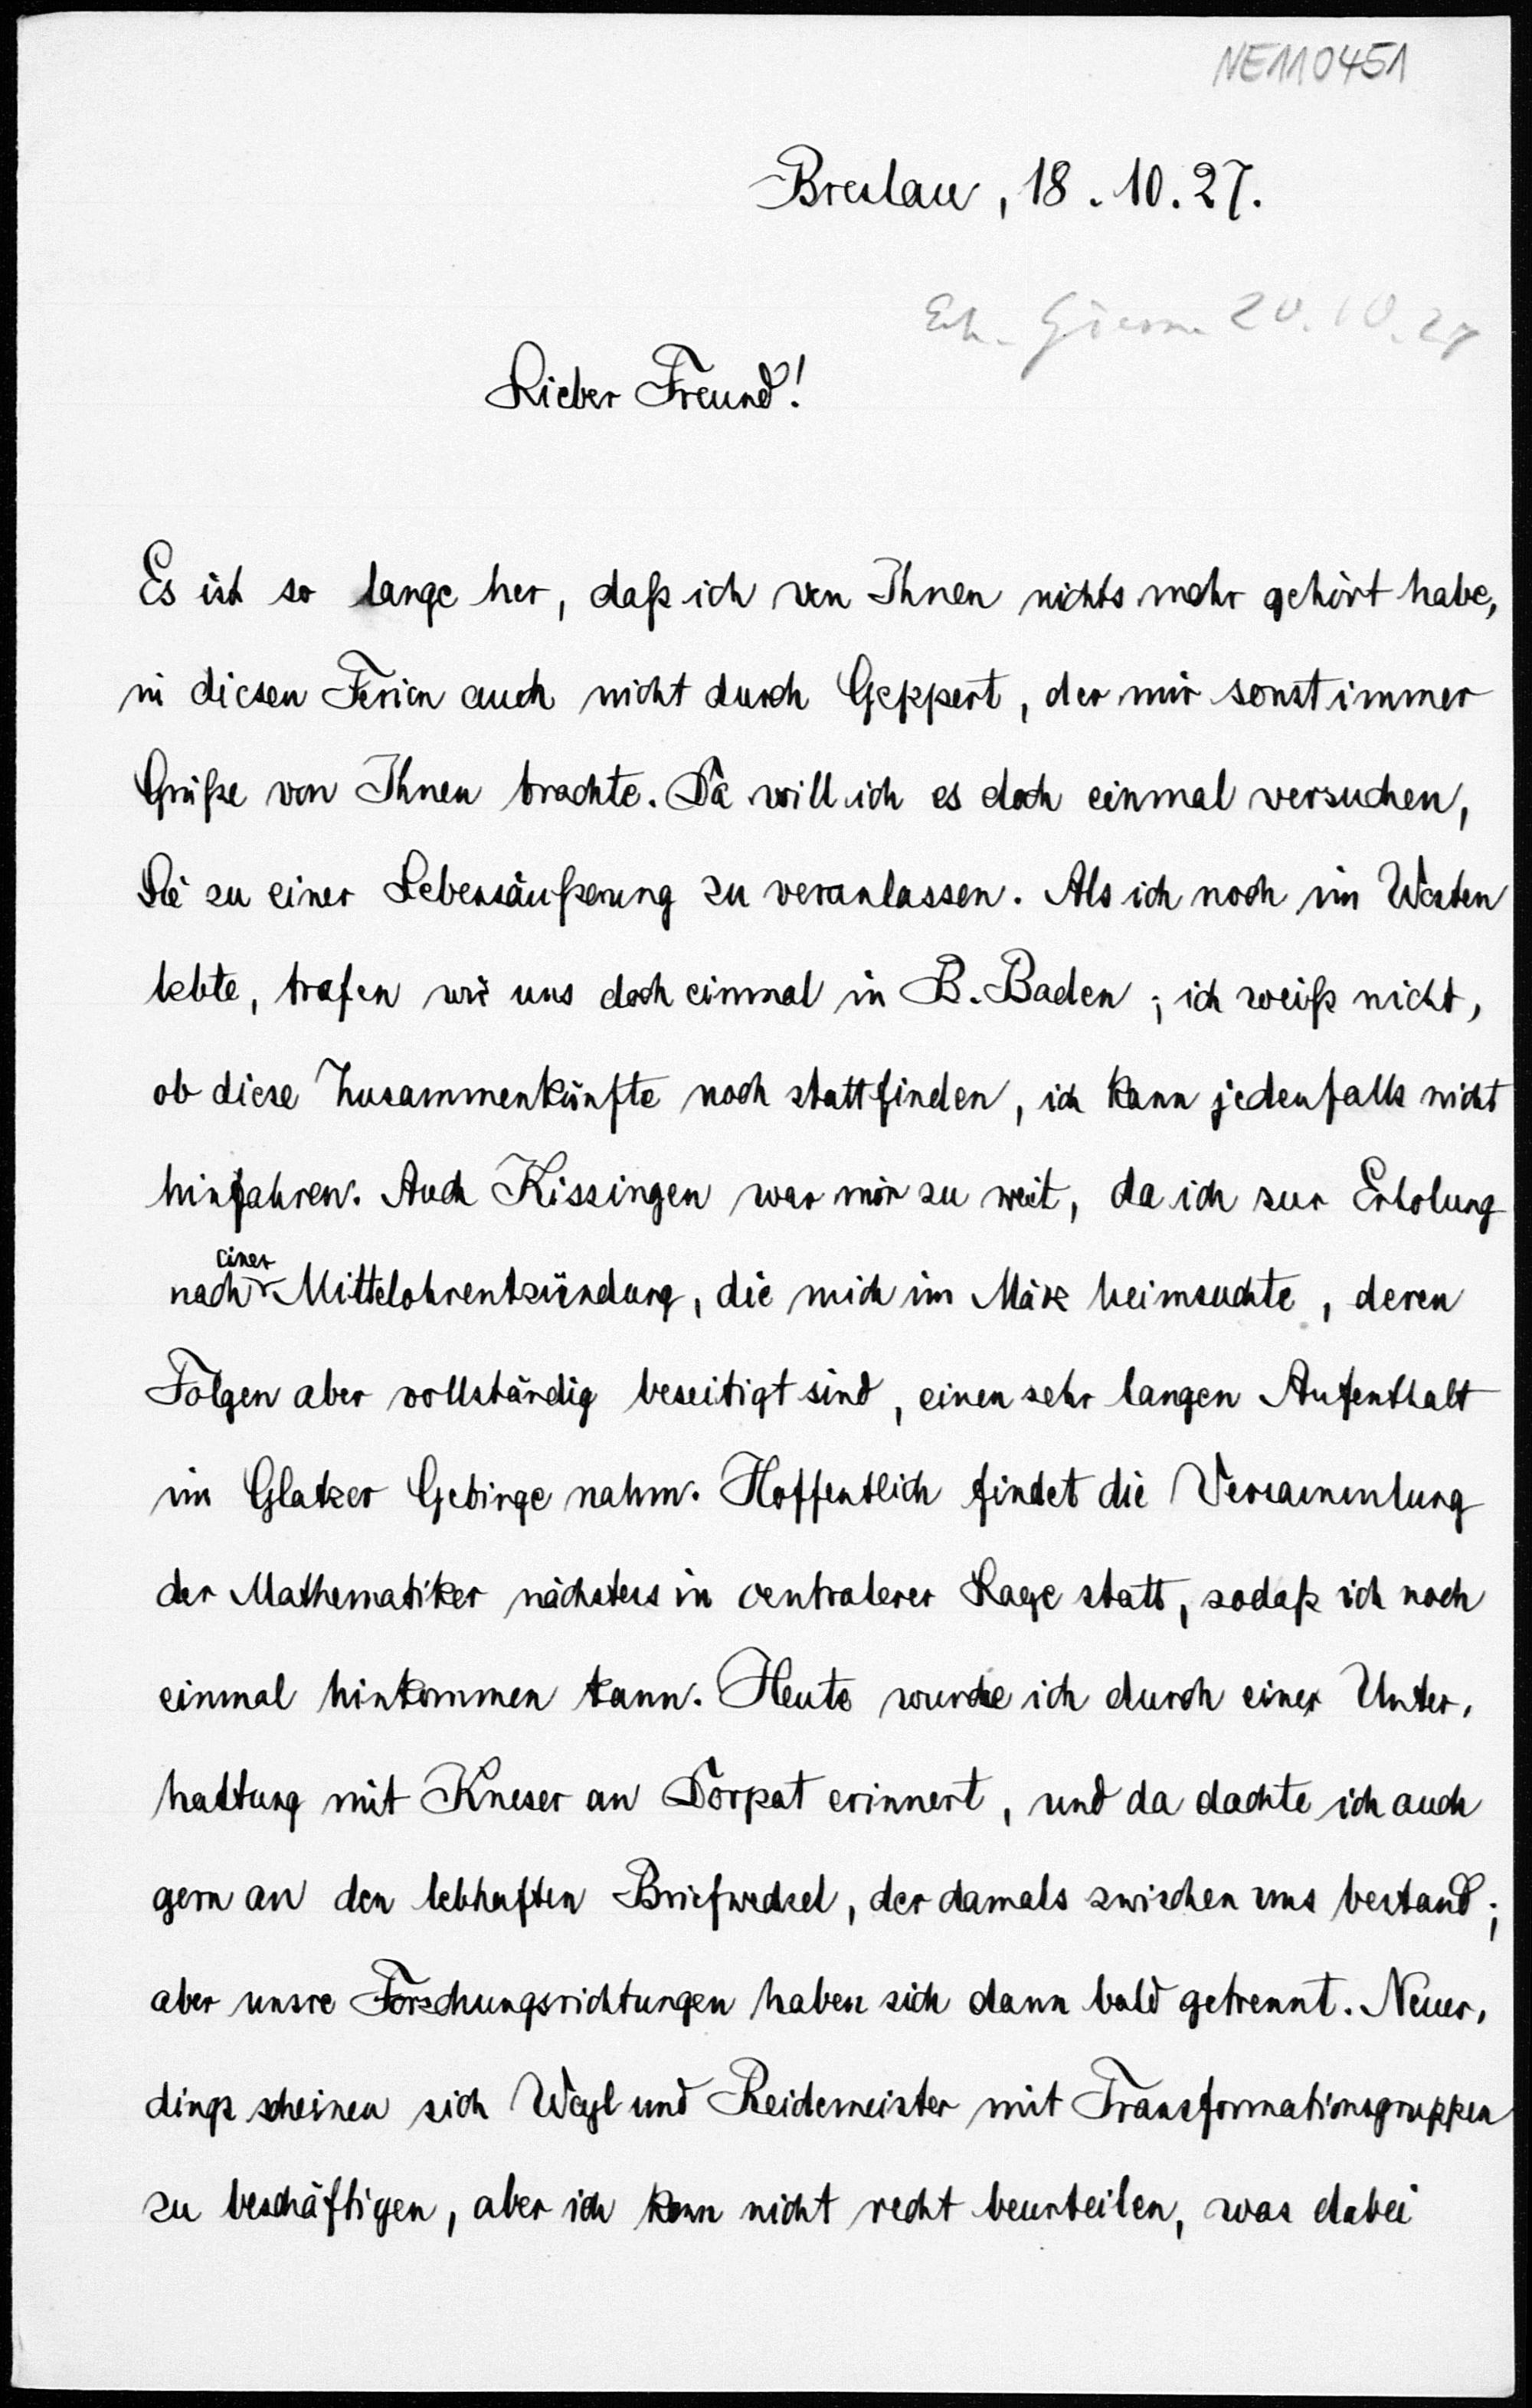 NE110451
Breslau, 18.10.27.
Erh. Giessen 20.10.27
Lieber Freund!
Es ist so lange her, daß ich von Ihnen nichts mehr gehört habe,
in diesen Ferien auch nicht durch Geppert, der mir sonst immer
Grüße von Ihnen brachte. Da will ich es doch einmal versuchen,
Sie zu einer Lebensäußerung zu veranlassen. Als ich noch im Westen
lebte, trafen wir uns doch einmal in B. Baden; ich weiß nicht,
ob diese Zusammenkünfte noch stattfinden, ich kann jedenfalls nicht
hinfahren. Auch Kissingen war mir zu weit, da ich zur Erholung
nach einer Mittelohrentzündung, die mich im März heimsuchte, deren
Folgen aber vollständig beseitigt sind, einen sehr langen Aufenthalt
im Glatzer Gebirge nahm. Hoffentlich findet die Versammlung
der Mathematiker nächstens in centralerer Lage statt, sodaß ich noch
einmal hinkommen kann. Heute wurde ich durch eine Unter-
haltung mit Kneser an Dorpat erinnert, und da dachte ich auch
gern an den lebhaften Briefwechsel, der damals zwischen uns bestand;
aber unsre Forschungsrichtungen haben sich dann bald getrennt. Neuer-
dings scheinen sich Weyl und Reidemeister mit Transformationsgruppen
zu beschäftigen, aber ich kann nicht recht beurteilen, was dabei